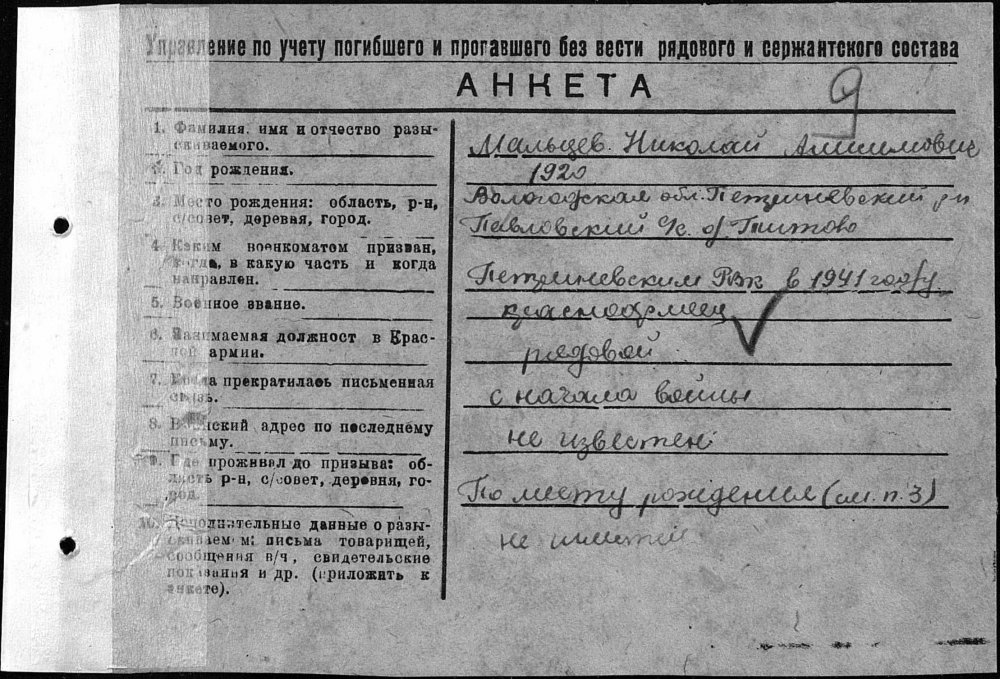 Управление по учету погибшего и пропавшего без вести рядового и сержантского состава
АНКЕТА
9
1. Фамилия, имя и отчество разы-
скиваемого.
Мальцев Николай
2. Год рождения.
1920
3. Место рождения: область, р-н,
с/совет, деревая, город.
Вологодская обл. Петриневский р-н
Павловский с/с. д. Титово
4. Каким военкоматом призван,
когда, в какую часть и когда
направлен.
Петриневским РВК в 1941 году
5. Военное звание.
красноармеец
6. Занимаемая должност в Крас-
ной армии.
рядовой
7. Когда прекратилась письменная
связь.
с начала войны
8. Воинский адрес по последнему
письму.
не известен
9. Где проживал до призыва: об-
ласть р-н, с/совет, деровня, го-
род.
По месту рождения (см. п. 3)
10. Дополнительные данные о разы-
скиваемом: письма товарищей,
сообщения в/ч, свидетельские
показания и др. (приложить к
анкете).
не имеется